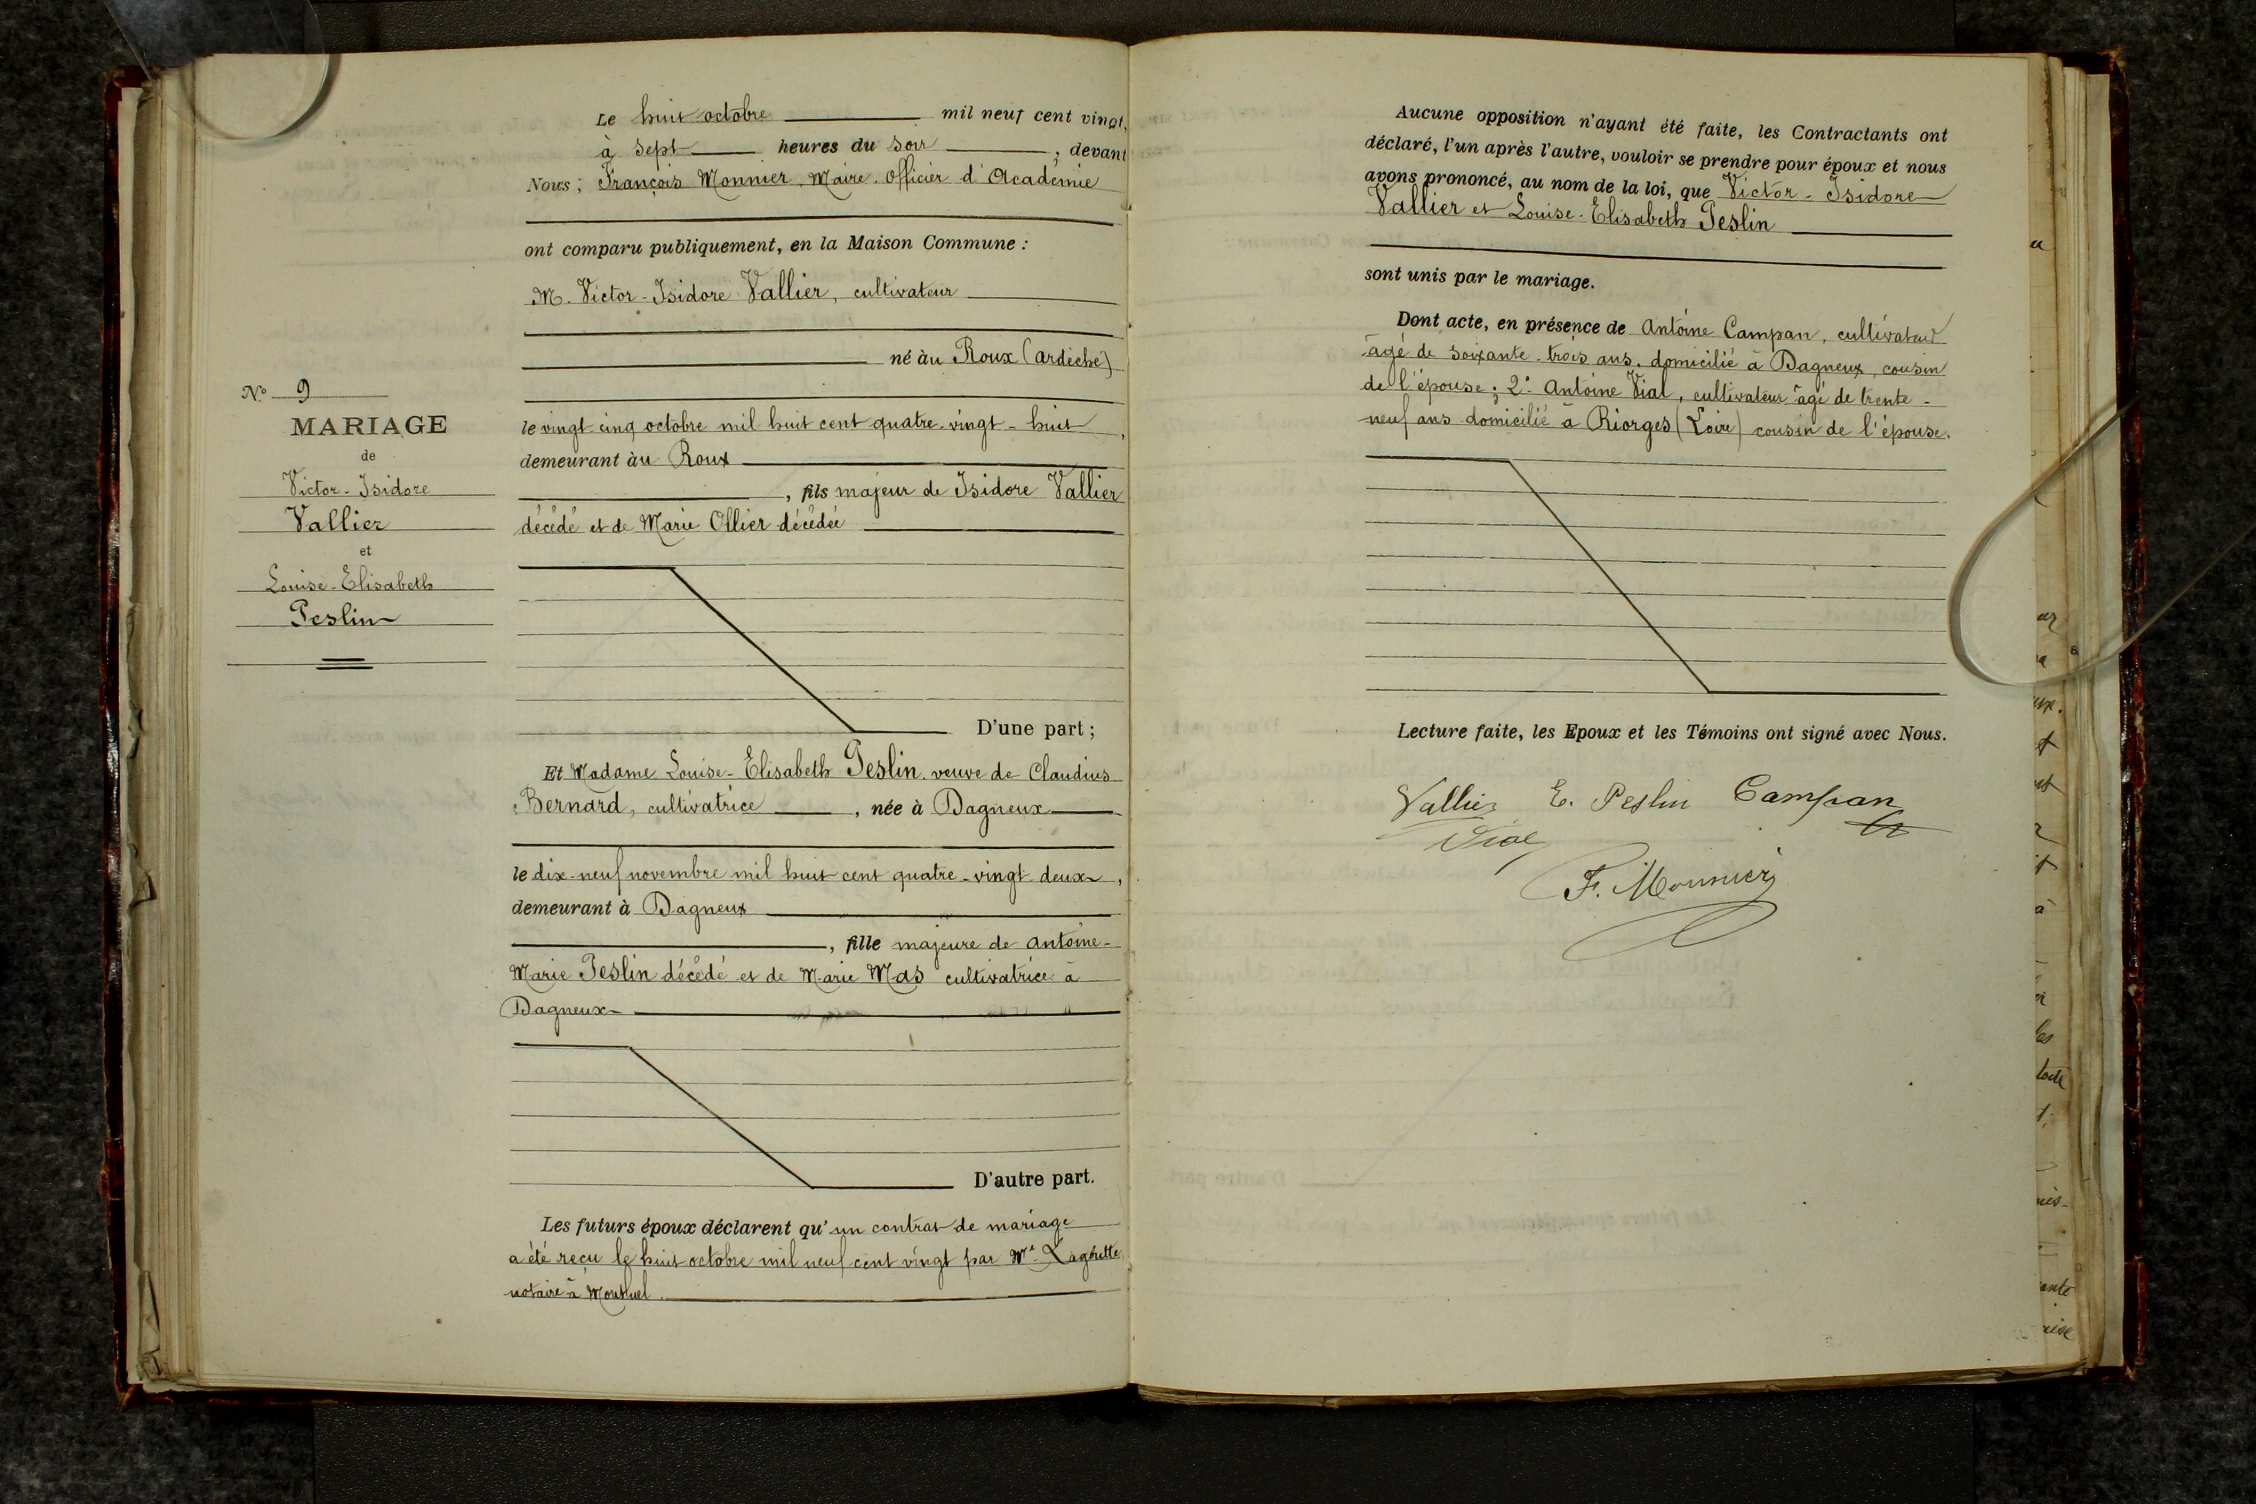 N° 9
MARIAGE
de
Victor-Isidore
Vallier
et
Louise-Elisabeth
Peslin
Le huit octobre mil neuf cent vingt,
à sept heures du soir ; devant
Nous ; François Monnier, Maire, officier d'Académie
ont comparu publiquement, en la Maison Commune :
M. Victor-Isidore Vallier, cultivateur
né àu Roux (Ardèche)
le vingt cinq octobre mil huit cent quatre-vingt-huit,
demeurant àu Roux
, fils majeur de Isidore Vallier
décédé et de Marie Ollier décédée
D'une part ;
Et Madame Louise-Elisabeth Peslin, veuve de Claudius
Bernard, cultivatrice, née à Dagneux
le dix-neuf novembre mil huit cent quatre-vingt deux,
demeurant à Dagneux
, fille majeure de Antoine-
Marie Peslin décédé et de Marie Mas cultivatrice à
Dagneux
D'autre part.
Les futurs époux déclarent qu'un contrat de mariage
a été reçu le huit octobre mil neuf cent vingt par Me
notaire à Montluel.
Aucune opposition n'ayant été faite, les Contractants ont
déclaré, l'un après l'autre, vouloir se prendre pour époux et nous
avons prononcé, au nom de la loi, que Victor-Isidore
Vallier et Louise-Elisabeth Peslin
sont unis par le mariage.
Dont acte, en présence de Antoine Campan, cultivateur
âgé de soixante-trois ans, domicilié à Dagneux, cousin
de l'épouse ; 2° Antoine Vial, cultivateur âgé de trente-
neuf ans domicilié à Riorges (Loire) cousin de l'épouse.
Lecture faite, les Epoux et les Témoins ont signé avec Nous.
Vallier E. Peslin Campan
Vial
F. Monnier